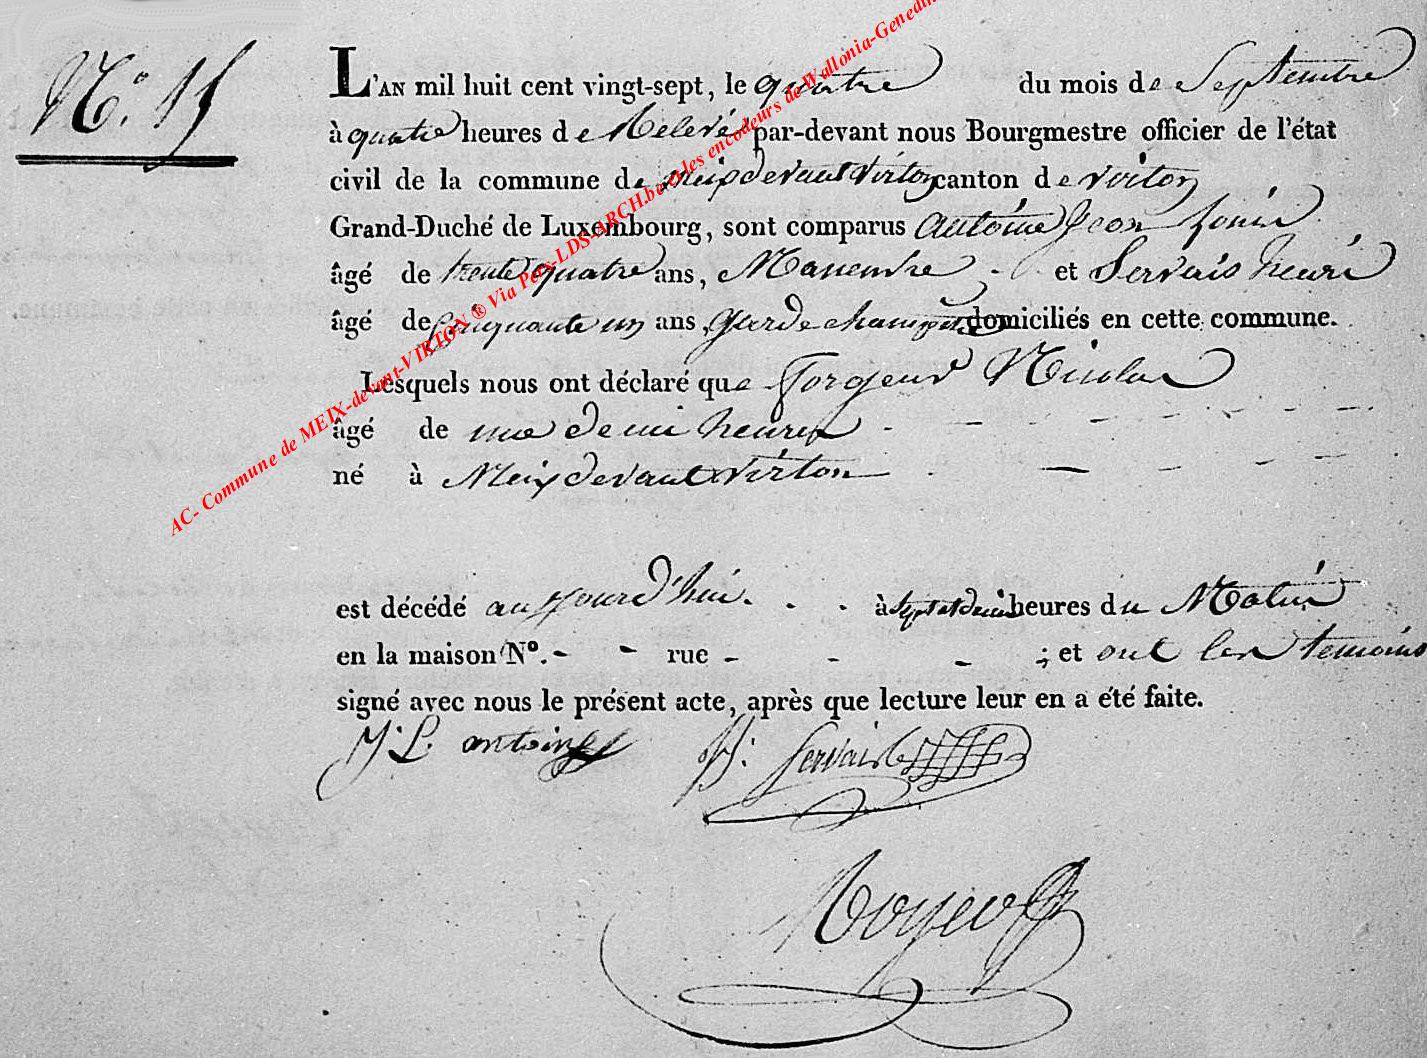 N.° 15
L'AN mil huit cent vingt-sept, le quatre du mois de Septembre
à quatre heures de Relevé par-devant nous Bourgmestre officier de l'état
civil de la commune de Meix devant Virton canton de virton
Grand-Duché de Luxembourg, sont comparus Antoine Jean Louis
âgé de trente quatre ans, Manœuvre et Servais henri
âgé de Cinquante un ans, garde champetre domiciliés en cette commune.
Lesquels nous ont déclaré que Forgeur Nicolas
âgé de une demi heures
né à Meix devant virton
est décédé aujourd'hui à sept et demi heures du Matin
en la maison N°. - - rue - - - ; et ont les temoins
signé avec nous le présent acte, après que lecture leur en a été faite.
J: L. antoine H: Servais
AC- Commune de MEIX-devant-VIRTON ® Via Pers-LDS-ARCH.be et les encodeurs de Wallonia-Genealo